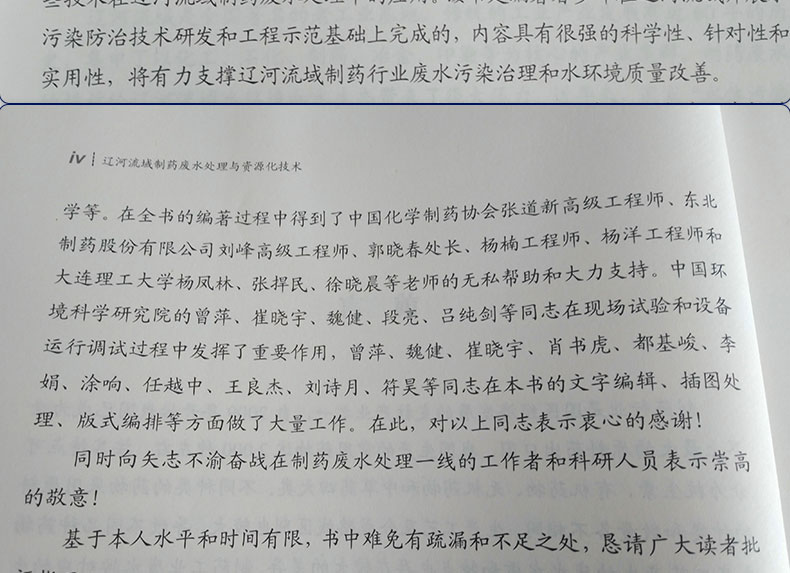 污染防治技术研发和工程示范基础上完成的，内容具有很强的科学性、针对性和
实用性，将有力支撑辽河流域制药行业废水污染治理和水环境质量改善。
iv | 辽河流域制药废水处理与资源化技术
学等。在全书的编著过程中得到了中国化学制药协会张道新高级工程师、东北
制药股份有限公司刘峰高级工程师、郭晓春处长、杨楠工程师、杨洋工程师和
大连理工大学杨凤林、张捍民、徐晓晨等老师的无私帮助和大力支持。中国环
境科学研究院的曾萍、崔晓宇、魏健、段亮、吕纯剑等同志在现场试验和设备
运行调试过程中发挥了重要作用，曾萍、魏健、崔晓宇、肖书虎、都基峻、李
娟、涂响、任越中、王良杰、刘诗月、符昊等同志在本书的文字编辑、插图处
理、版式编排等方面做了大量工作。在此，对以上同志表示衷心的感谢！
同时向矢志不渝奋战在制药废水处理一线的工作者和科研人员表示崇高
的敬意！
基于本人水平和时间有限，书中难免有疏漏和不足之处，恳请广大读者批